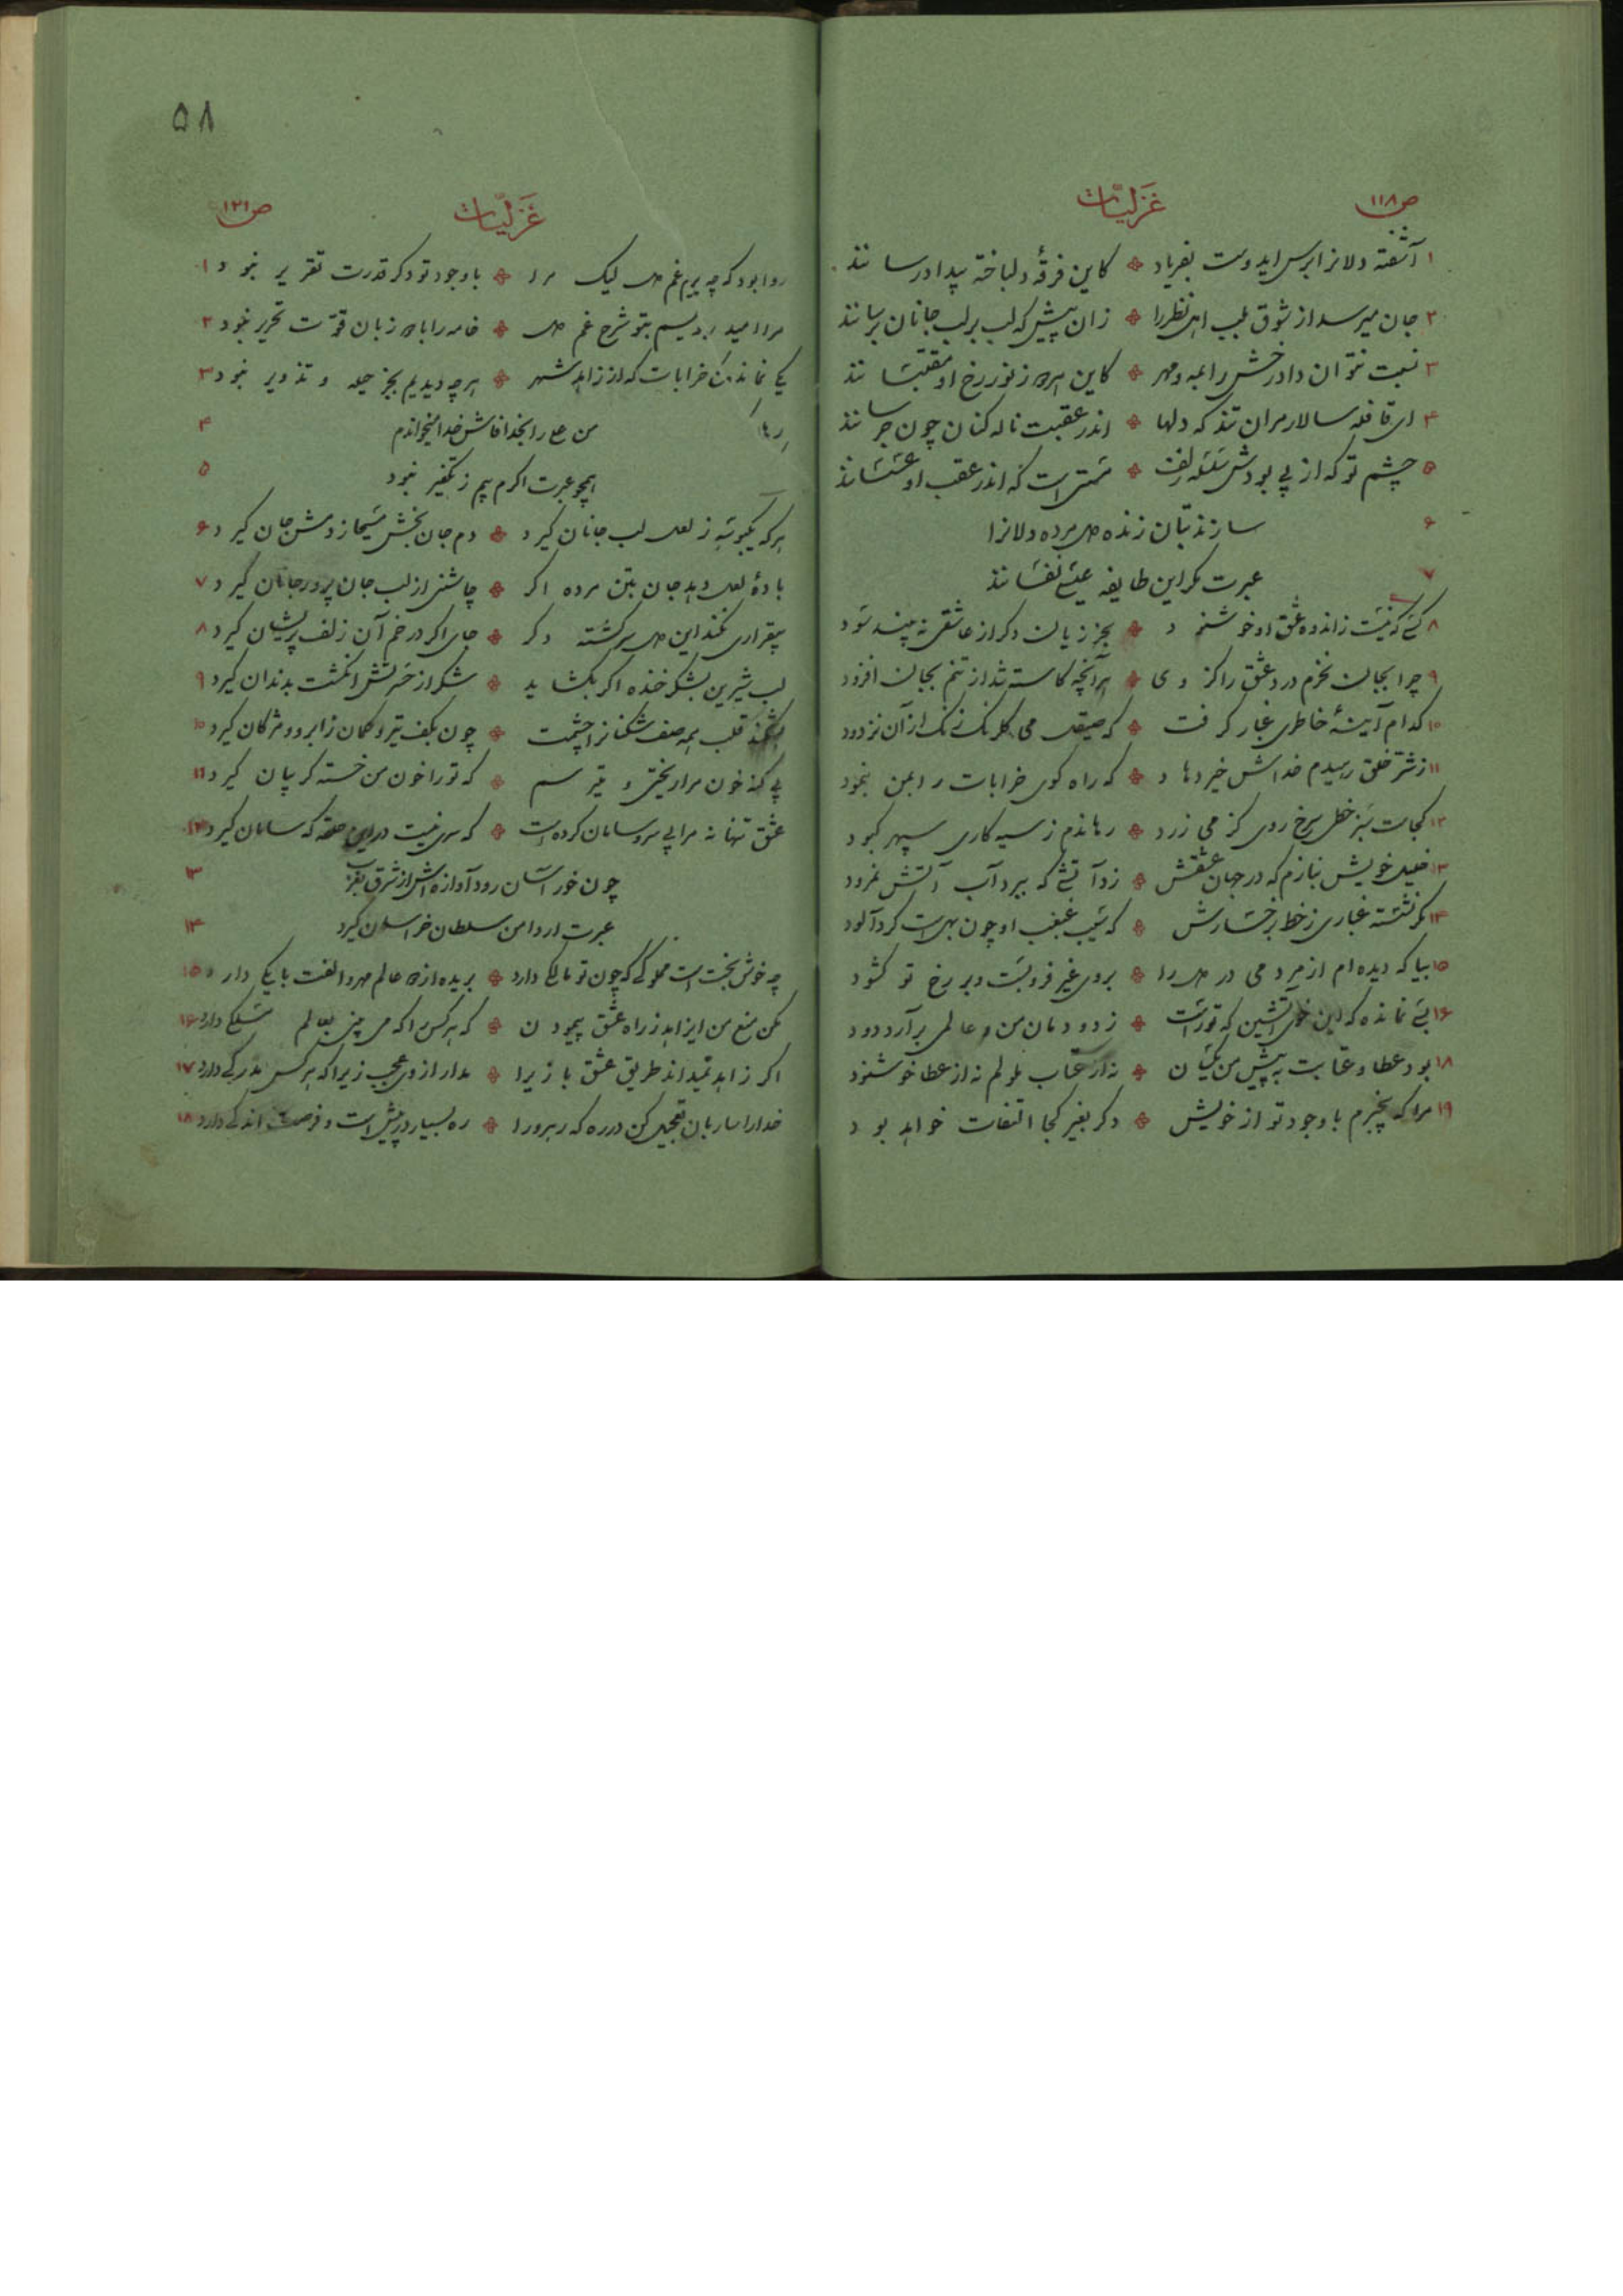 ص۱۱۸
غزلیّات
۱ آشفته دلانرا برس ایدوست بفریاد ❖ کاین فرقهٔ دلباخته بیدادرسانند
۲ جان میرسد از شوق بلب اهل نظر را ❖ زان پیش که لب بر لب جانان برسانند
۳ نسبت نتوان داد رخش را بمه و مهر ❖ کاین هر دو ز نور رخ او مقتبسانند
۴ ای قافله سالار مران تند که دلها ❖ اندر عقبت ناله کنان چون جرسانند
۵ چشم تو که از پی بودش سلسله زلف ❖ مستی است که اندر عقب او عسسانند
۶ سازند بتان زنده دل مرده دلانرا
۷ عبرت مگر این طایفه عیسی نفسانند
۸ کسی که نیست ز اندوه عشق او خوشنود ❖ بجز زیان دگر از عاشقی نه بیند سود
۹ چرا بجان نخرم درد عشق را کز وی ❖ هر آنچه کاسته شد از تنم بجان افزود
۱۰ کدام آینهٔ خاطری غبار گرفت ❖ که صیقل می گلرنگ زنگ از آن نزدود
۱۱ ز شر خلق رهیدم خداش خیر دهاد ❖ که راه کوی خرابات را بمن بنمود
۱۲ کجاست سبز خطی سرخ روی کز می زرد ❖ رهاندم ز سیه کاری سپهر کبود
۱۳ خلیل خویش بنازم که در جهان عشقش ❖ زد آتشی که ببرد آب آتش نمرود
۱۴ مگر نشسته غباری ز خط برخسارش ❖ که سیب غبغب او چون بهی است گردآلود
۱۵ بیا که دیده ام از مردمی در دل را ❖ بروی غیر فرو بست و بر رخ تو گشود
۱۶ بسی نمانده که این خوی آتشین که توراست ❖ ز دودمان من و عالمی برآرد دود
۱۸ بود عطا و عتابت به پیش من یکسان ❖ نه از عتاب ملولم نه از عطا خوشنود
۱۹ مرا که بیخبرم با وجود تو از خویش ❖ دگر بغیر کجا التفات خواهد بود
۵۸
غزلیّات
ص۱۲۱
روا بود که چه پرسی غم دل لیک مرا ❖ با وجود تو دگر قدرت تقریر نبود ۱
خامه را با دو زبان قوّت تحریر نبود ۲
هر چه دیدیم بجز حیله و تزویر نبود ۳
۴
همچو عبرت اگرم بیم ز تکفیر نبود ۵
هر که یکبوسه ز لعل لب جانان گیرد ❖ دم جان بخش مسیحا ز دمش جان گیرد ۶
بادهٔ لعل دهد جان بتن مرده اگر ❖ چاشنی از لب جان پرور جانان گیرد ۷
بیقراری نکند این دل سرگشته دگر ❖ جای اگر در خم آن زلف پریشان گیرد ۸
لب شیرین بشکر خنده اگر بگشاید ❖ شکر از حسرتش انگشت بدندان گیرد ۹
شکند قلب همه صف شکنانرا چشمت ❖ چون بکف تیر و کمان ز ابرو و مژگان گیرد ۱۰
بی گنه خون مرا ریختی و میترسم ❖ که تو را خون من خسته گریبان گیرد ۱۱
عشق تنها نه مرا بی سر و سامان کرده است ❖ که سری نیست در این حلقه که سامان گیرد ۱۲
چون خور آسان رود آوازه اش از شرق بغرب ۱۳
عبرت ار دامن سلطان خراسان گیرد ۱۴
چه خوش بخت است مملوکی که چون تو مالکی دارد ❖ بریده از دو عالم مهر و الفت با یکی دارد ۱۵
مکن منع من ایزاهد ز راه عشق پیمودن ❖ که هر کس را که می بینی بعالم مسلکی دارد ۱۶
اگر زاهد نمیداند طریق عشقبازی را ❖ مدار از وی عجب زیرا که هر کس مدرکی دارد ۱۷
خدا را ساربان تعجیل کن در ره که رهرو را ❖ ره بسیار در پیش است و فرصت اندکی دارد ۱۸